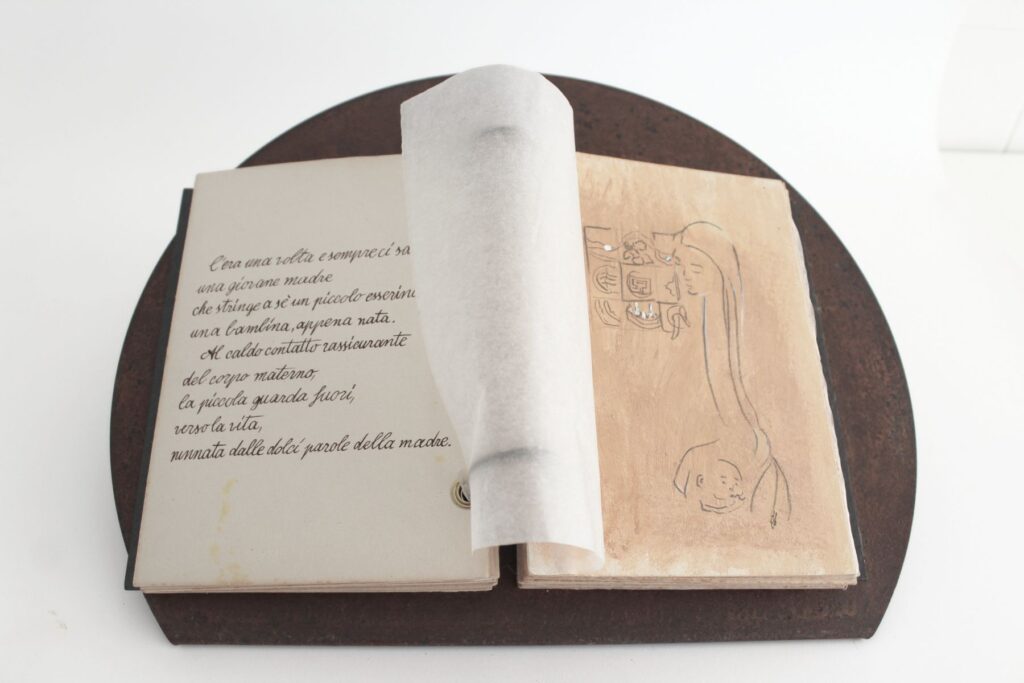 C'era una volta e sempre ci sa
una giovane madre
che stringe a sè un piccolo esserino
una bambina, appena nata.
Al caldo contatto rassicurante
del corpo materno,
la piccola guarda fuori,
verso la vita,
ninnata dalle dolci parole della madre.